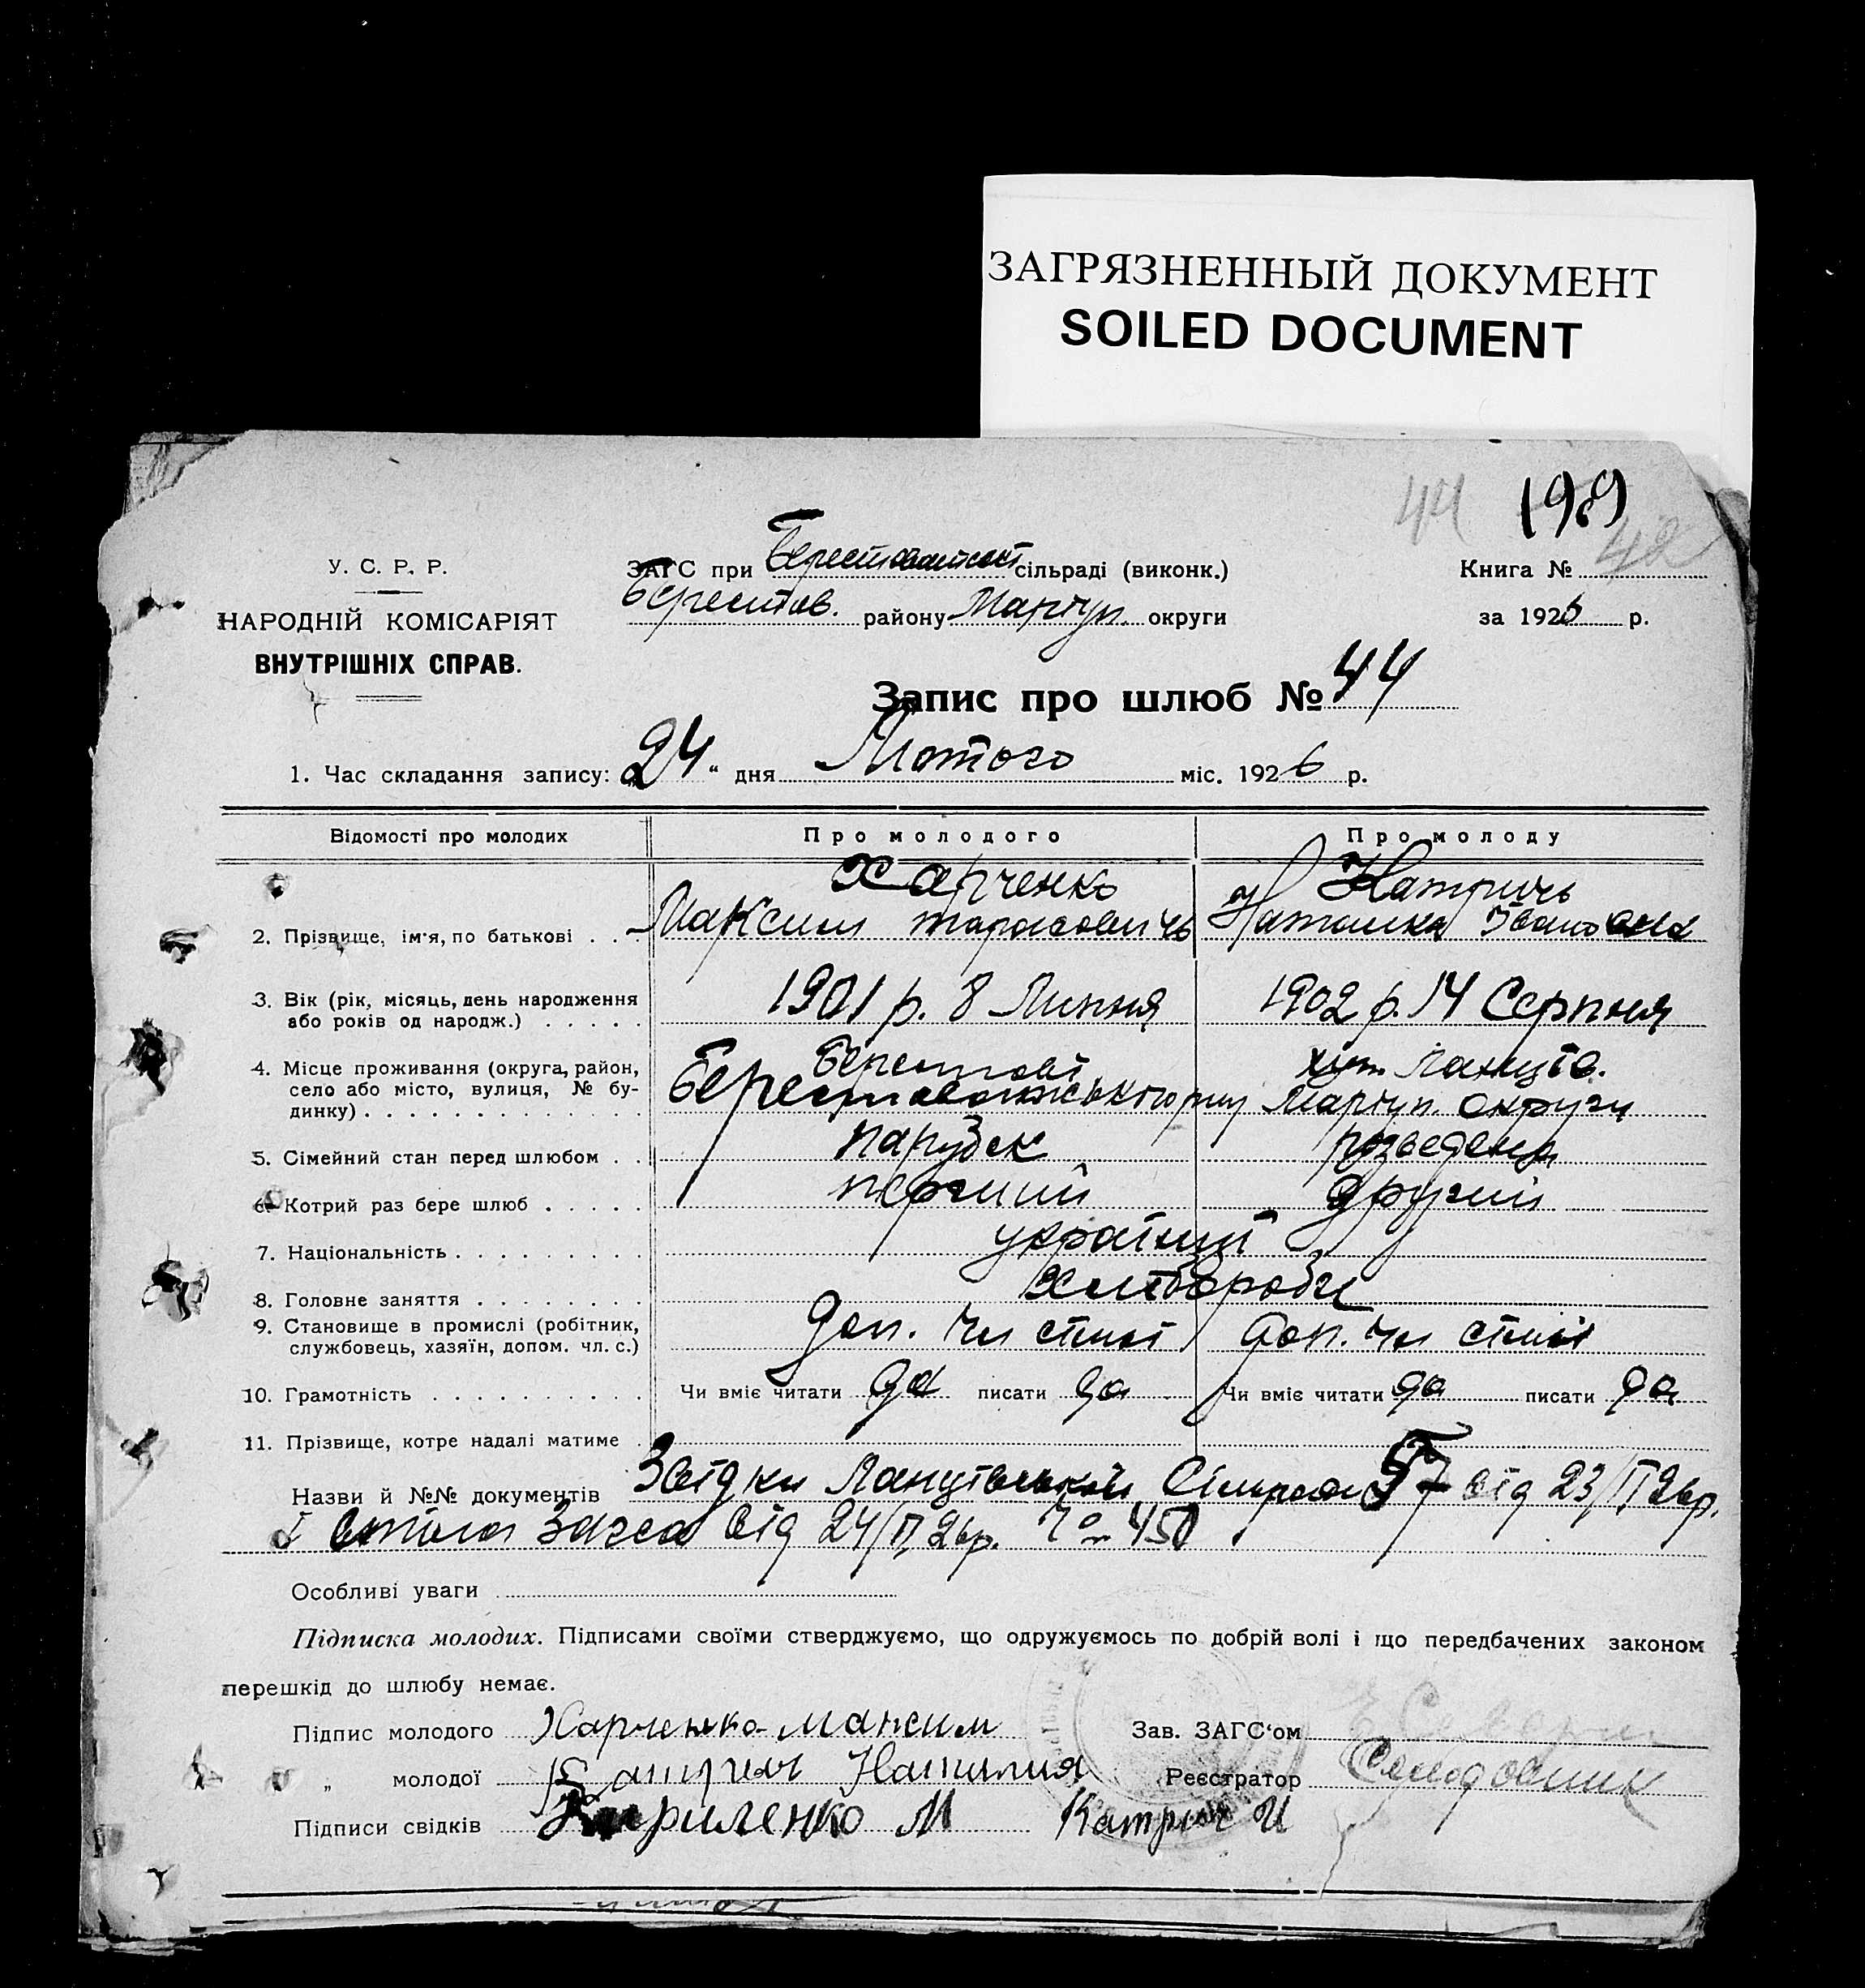 ЗАГРЯЗНЕННЫЙ ДОКУМЕНТ
SOILED DOCUMENT
44 199
42
У. С. Р. Р.
НАРОДНІЙ КОМІСАРІЯТ
ВНУТРІШНІХ СПРАВ.
ЗАГС при сільраді (виконк.)
Берестов. району Маріуп. округи
Книга №
за 1926 р.
Запис про шлюб № 44
1. Час складання запису: „24“ дня Лютого міс. 1926 р.
Відомості про молодих Про молодого Про молоду
2. Прізвище, ім'я, по батькові . . . Харченко Максим тарасовичь Катричь Наталка Івановна
3. Вік (рік, місяць, день народження або років од народж.) . . . . . 1901 р. 8 Липня 1902 р. 14 Серпня
4. Місце проживання (округа, район, село або місто, вулиця, № будинку) . . . . . . . . . . . . . Маріуп. округи
5. Сімейний стан перед шлюбом . . парубок розведена
6. Котрий раз бере шлюб . . . . . перший другий
7. Національність . . . . . . . . . українці
8. Головне заняття . . . . . . . . Хлібороби
9. Становище в промислі (робітник, службовець, хазяїн, допом. чл. с.) доп. чл сімї доп. чл сімї
10. Грамотність . . . . . . . . . . Чи вміє читати да писати да Чи вміє читати да писати да
11. Прізвище, котре надалі матиме .
Назви й №№ документів Звідки Сільради 57 від 23/II 26р.
і Загса від 24/II 26р. № 450
Особливі уваги
Підписка молодих. Підписами своїми стверджуємо, що одружуємось по добрій волі і що передбачених законом
перешкід до шлюбу немає.
Підпис молодого Харченко Максим Зав. ЗАГС‘ом
„ молодої Катрич Наталия Реєстратор
Підписи свідків Кириленко М Катрич И